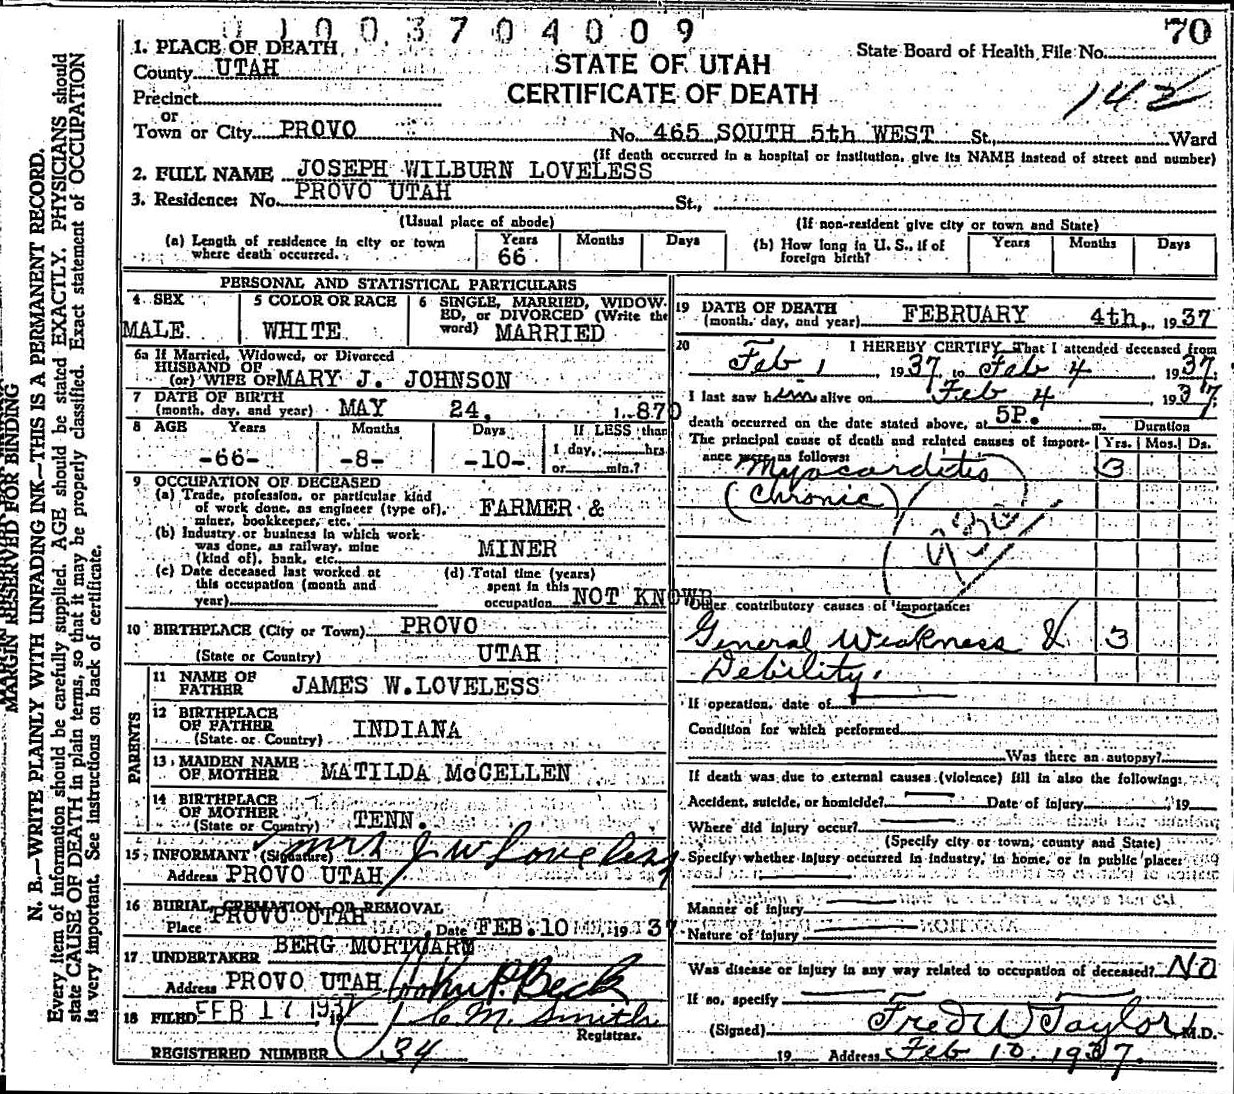 0 1 0 0 3 7 0 4 0 0 9
70
1. PLACE OF DEATH
County UTAH
Precinct
or
Town or City PROVO
STATE OF UTAH
CERTIFICATE OF DEATH
State Board of Health File No.
142
No. 465 SOUTH 5th WEST St., Ward
(If death occurred in a hospital or institution, give its NAME instead of street and number)
2. FULL NAME JOSEPH WILBURN LOVELESS
3. Residence: No. PROVO UTAH St.,
(Usual place of abode)
(If non-resident give city or town and State)
(a) Length of residence in city or town where death occurred.
Years Months Days
66
(b) How long in U. S., if of foreign birth?
Years Months Days
PERSONAL AND STATISTICAL PARTICULARS
4 SEX
MALE
5 COLOR OR RACE
WHITE
6 SINGLE, MARRIED, WIDOW-
ED, or DIVORCED (Write the
word) MARRIED
6a If Married, Widowed, or Divorced
HUSBAND OF
(or) WIFE OF MARY J. JOHNSON
7 DATE OF BIRTH
(month, day, and year) MAY 24, 1870
8 AGE Years Months Days If LESS than
-66- -8- -10- 1 day, hrs
or min.?
9 OCCUPATION OF DECEASED
(a) Trade, profession, or particular kind
of work done, as engineer (type of),
miner, bookkeeper, etc. FARMER &
(b) Industry or business in which work
was done, as railway, mine
(kind of), bank, etc. MINER
(c) Date deceased last worked at
this occupation (month and
year)
(d) Total time (years)
spent in this
occupation NOT KNOWB
10 BIRTHPLACE (City or Town) PROVO
(State or Country) UTAH
PARENTS
11 NAME OF
FATHER JAMES W.LOVELESS
12 BIRTHPLACE
OF FATHER
(State or Country) INDIANA
13 MAIDEN NAME
OF MOTHER MATILDA McCELLEN
14 BIRTHPLACE
OF MOTHER
(State or Country) TENN.
15 INFORMANT (Signature) Mrs J W Loveless
Address PROVO UTAH
16 BURIAL, CREMATION OR REMOVAL
Place PROVO UTAH Date FEB. 10 19 37
17 UNDERTAKER BERG MORTUARY
Address PROVO UTAH John P. Beck
18 FILED FEB 17 1937 19
C. M. Smith
Registrar.
REGISTERED NUMBER 34
19 DATE OF DEATH
(month, day, and year) FEBRUARY 4th, 1937
20 I HEREBY CERTIFY, That I attended deceased from
Feb 1, 1937 to Feb 4 1937.
I last saw him alive on Feb 4 1937
death occurred on the date stated above, at 5P. m. Duration
The principal cause of death and related causes of import-
ance were as follows:
Yrs. Mos. Ds.
Myocarditis 3
(Chronic)
93c
Other contributory causes of importance:
General Weakness & 3
Debility.
If operation, date of
Condition for which performed
Was there an autopsy?
If death was due to external causes (violence) fill in also the following:
Accident, suicide, or homicide? Date of injury 19
Where did injury occur?
(Specify city or town, county and State)
Specify whether injury occurred in industry, in home, or in public place:
Manner of injury
Nature of injury
Was disease or injury in any way related to occupation of deceased? NO
If so, specify
(Signed) Fred W Taylor M.D.
19 Address Feb 10. 1937.
MARGIN RESERVED FOR BINDING
N. B.—WRITE PLAINLY WITH UNFADING INK—THIS IS A PERMANENT RECORD.
Every item of information should be carefully supplied. AGE should be stated EXACTLY. PHYSICIANS should
state CAUSE OF DEATH in plain terms, so that it may be properly classified. Exact statement of OCCUPATION
is very important. See instructions on back of certificate.